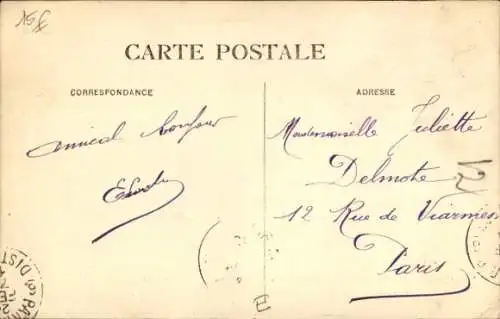 CARTE POSTALE
CORRESPONDANCE
ADRESSE
amical bonjour
Mademoiselle Juliette
Delmote
12 Rue de Viarmes
Paris
12
E
DIST